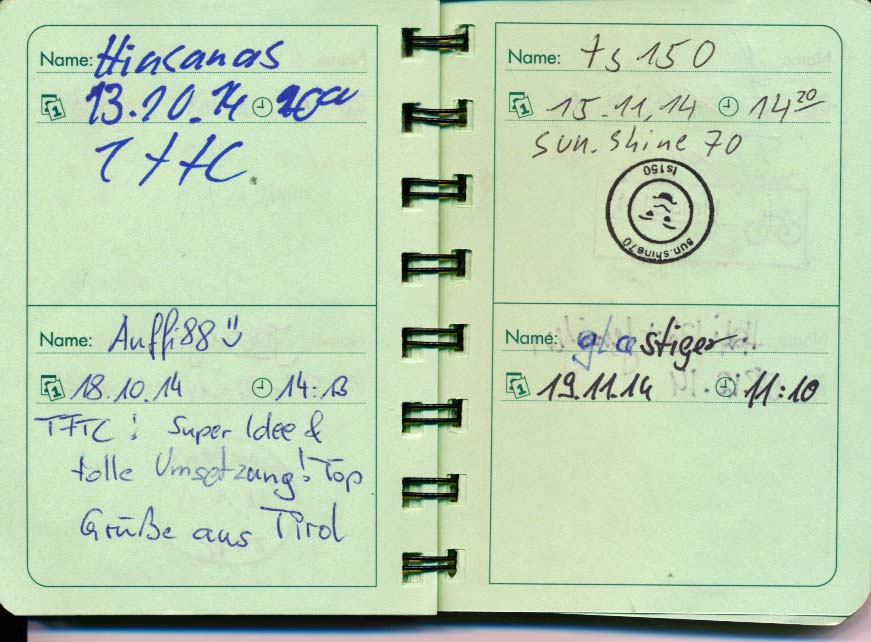 Name: Hiasanas
13.10.14
TFTC
Name: Auffi88
18.10.14 14:13
TFTC! Super Idee &
tolle Umsetzung! Top
Grüße aus Tirol
Name: ts150
15.11.14 14 20
sun.shine 70
ts150
sun.shine70
Name: glastiger
19.11.14 11:10